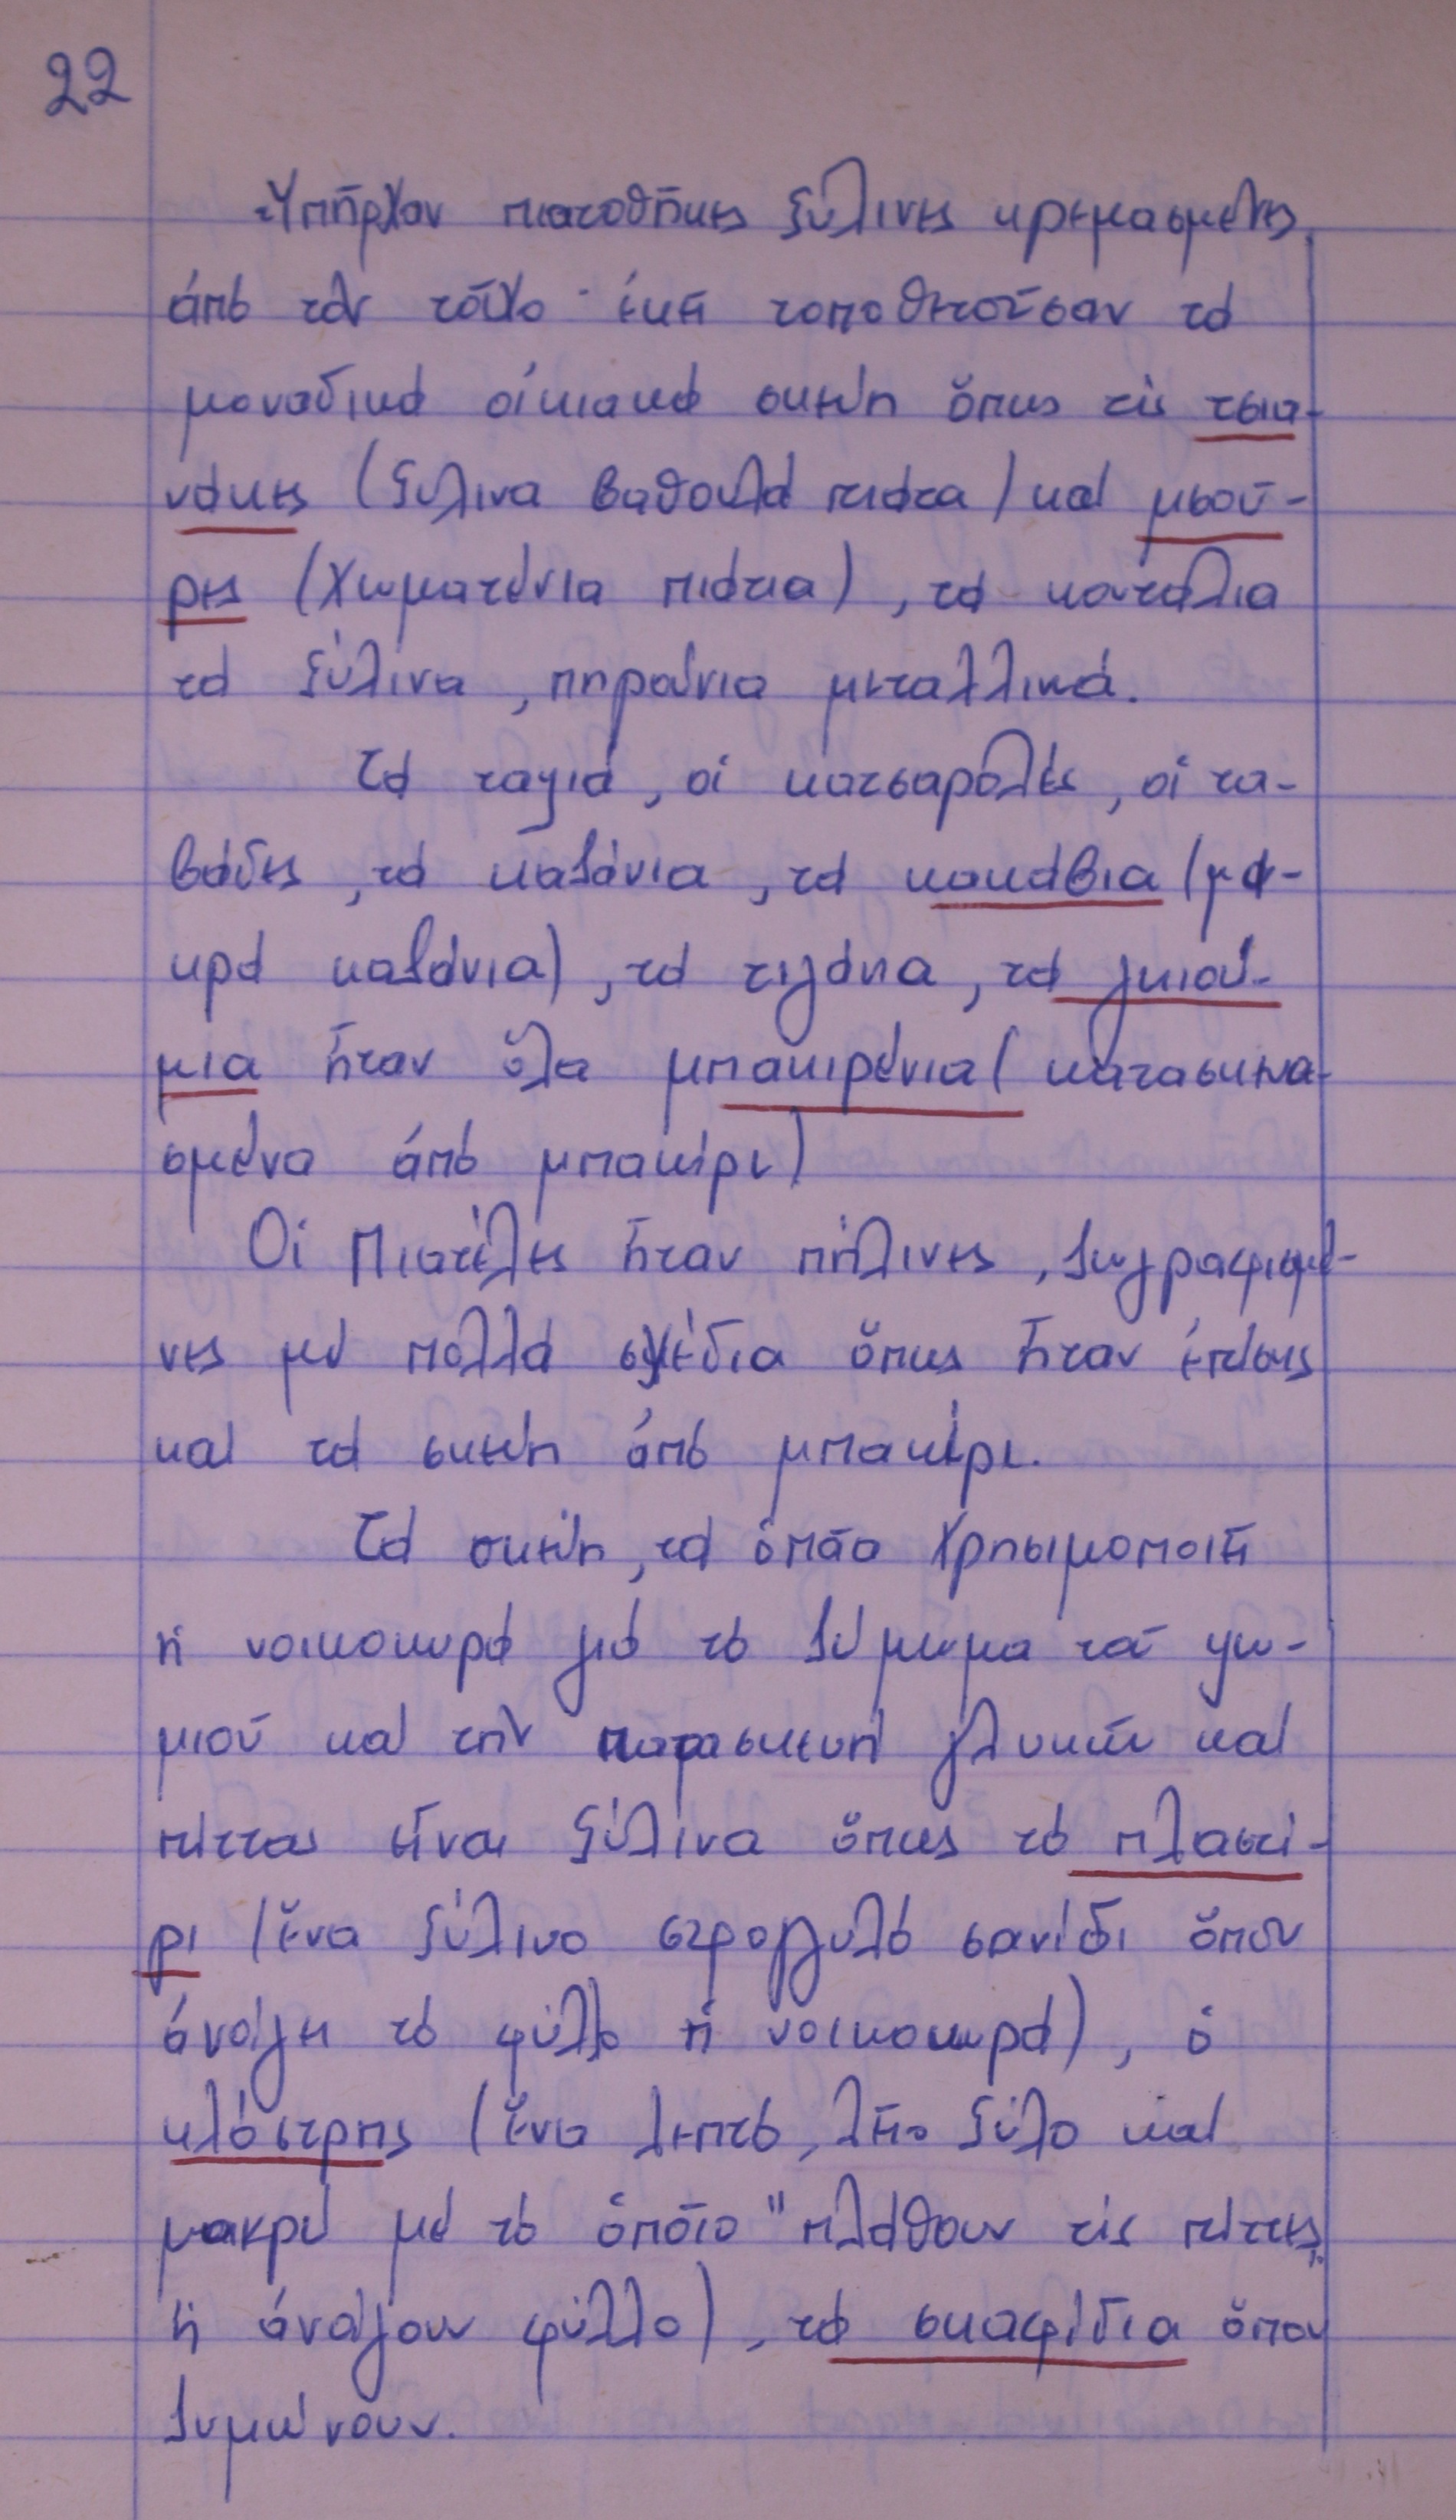 22
Ὑπῆρχαν πιατοθῆκες ξύλινες κρεμασμένες
ἀπό τόν τοῖχο· ἐκεῖ τοποθετοῦσαν τά
μοναδικά οἰκιακά σκεύη ὅπως τίς τσια-
νάκες (ξύλινα βαθουλά πιάτα) καί μσού-
ρες (χωματένια πιάτα), τά κουτάλια
τά ξύλινα, πηρούνια μεταλλικά.
Τά ταψιά, οἱ κατσαρόλες, οἱ τα-
βάδες, τά καζάνια, τά κακάβια (μα-
κρά καζάνια), τά τιγάνια, τά γκιού-
μια ἦταν ὅλα μπακιρένια (κατασκευα-
σμένα ἀπό μπακίρι)
Οἱ Πιατέλες ἦταν πήλινες, ζωγραφισμέ-
νες μέ πολλά σχέδια ὅπως ἦταν ἐπίσης
καί τά σκεύη ἀπό μπακίρι.
Τά σκεύη, τά ὁποῖα χρησιμοποιεῖ
ἡ νοικοκυρά γιά τό ζύμωμα τοῦ ψω-
μιοῦ καί τήν παρασκευή γλυκῶν καί
πίττας εἶναι ξύλινα ὅπως τό πλαστί-
ρι (ἕνα ξύλινο στρογγυλό σανίδι ὅπου
ἀνοίγει τό φύλλο ἡ νοικοκυρά), ὁ
κλόστρης (ἕνα λεπτό, λεῖο ξύλο καί
μακρύ μέ τό ὁποῖο "πλάθουν τίς πίττες"
ἤ ἀνοίγουν φύλλο), τά σκαφίδια ὅπου
ζυμώνουν.